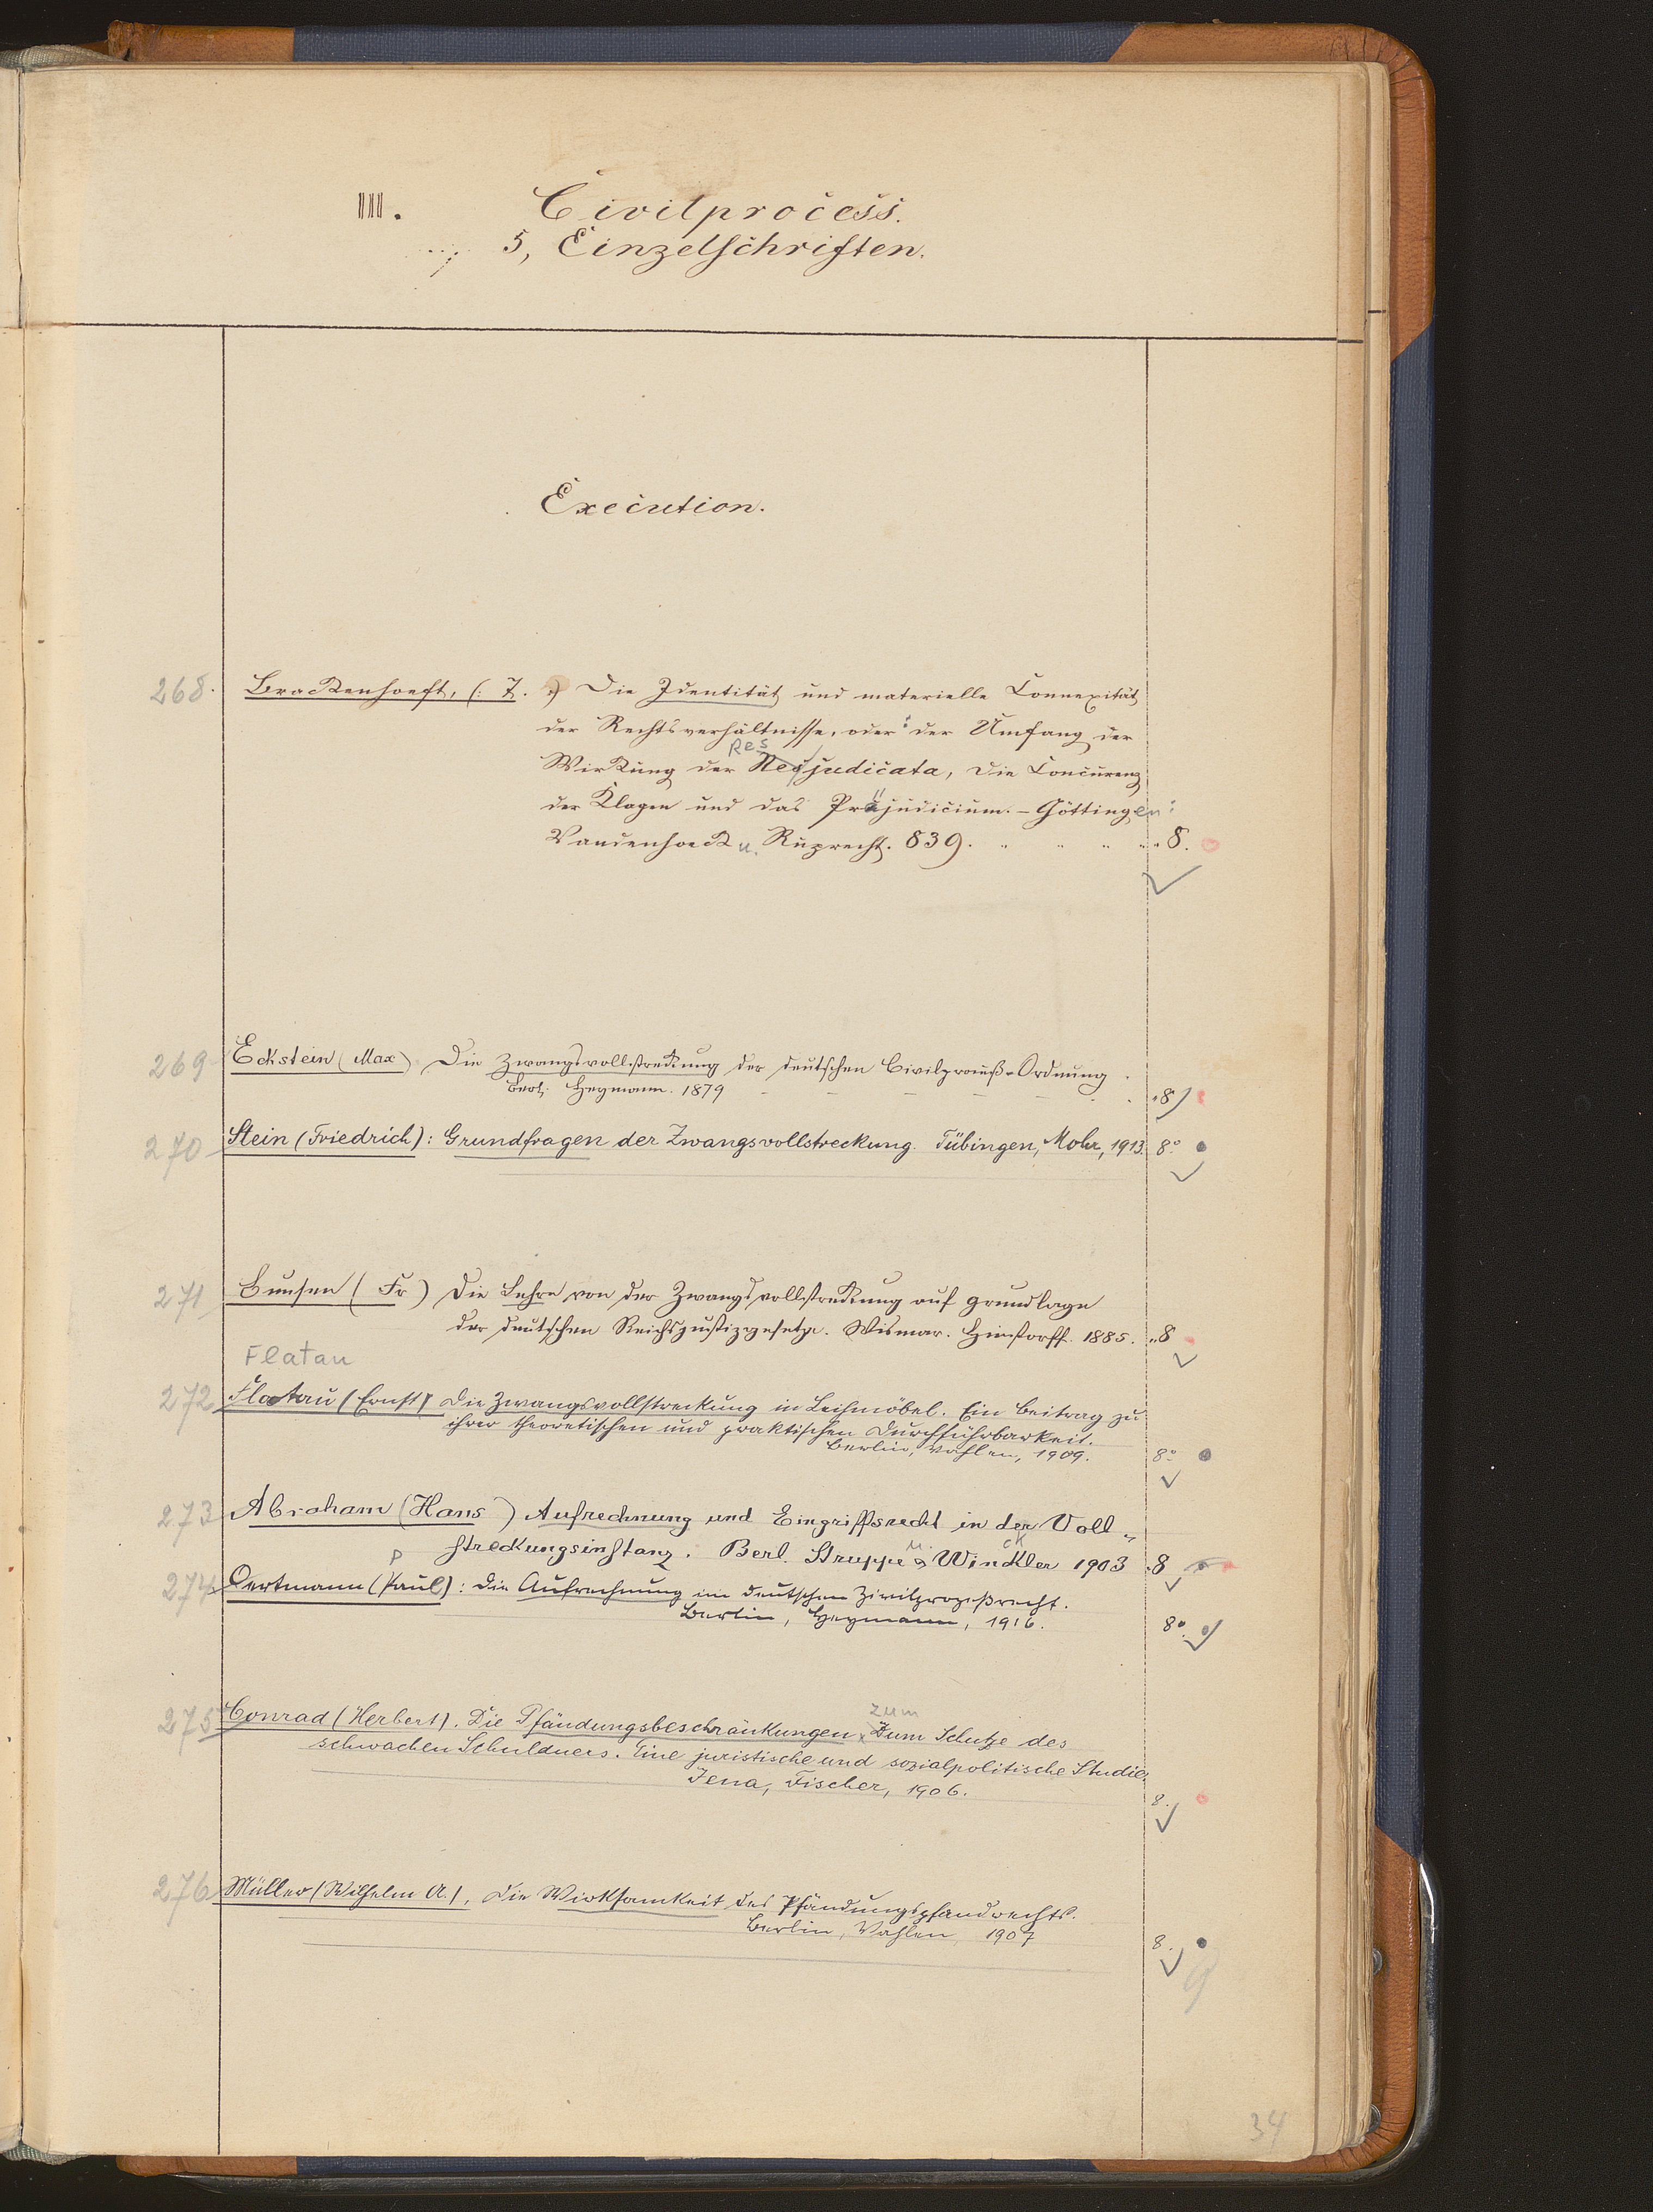 III. Civilprocess.
5, Einzelschriften.
Execution.
268. Brackenhoeft, (: T. :) Die Identität und materielle Connexität
der Rechtsverhältnisse, oder: der Umfang der
Res
Wirkung der Res judicata, die Concurenz
der Klagen und das Präjudicium. - Göttingen:
Vandenhoeck u. Ruprecht. 839. 8.
269 Eckstein (Max) Die Zwangsvollstreckung der deutschen Civilproceß-Ordnung
Berl. Heymann. 1879 8
270 Stein (Friedrich): Grundfragen der Zwangsvollstreckung. Tübingen, Mohr, 1913. 8°
271 Bunsen (Fr) Die Lehre von der Zwangsvollstreckung auf Grundlage
der deutschen Reichsjustizgesetze. Wismar. Hinstorff. 1885. 8
Flatau
272 Flatau (Ernst) Die Zwangsvollstreckung in Leihmöbel. Ein Beitrag zu
ihrer theoretischen und praktischen Durchführbarkeit.
Berlin, Vahlen, 1909. 8°
273 Abraham (Hans) Aufrechnung und Eingriffsrecht in der Voll-
streckungsinstanz. Berl. Struppe & Winckler 1903 8
274 Oertmann (Paul): Die Aufrechnung im deutschen Zivilprozeßrecht.
Berlin, Heymann, 1916. 8°.
zum
275 Conrad (Herbert). Die Pfändungsbeschränkungen Zum Schutze des
schwachen Schuldners. Eine juristische und sozialpolitische Studie.
Jena, Fischer, 1906. 8.
276 Müller (Wilhelm A.). Die Wirksamkeit des Pfändungspfandrechts.
Berlin, Vahlen, 1907 8.
34